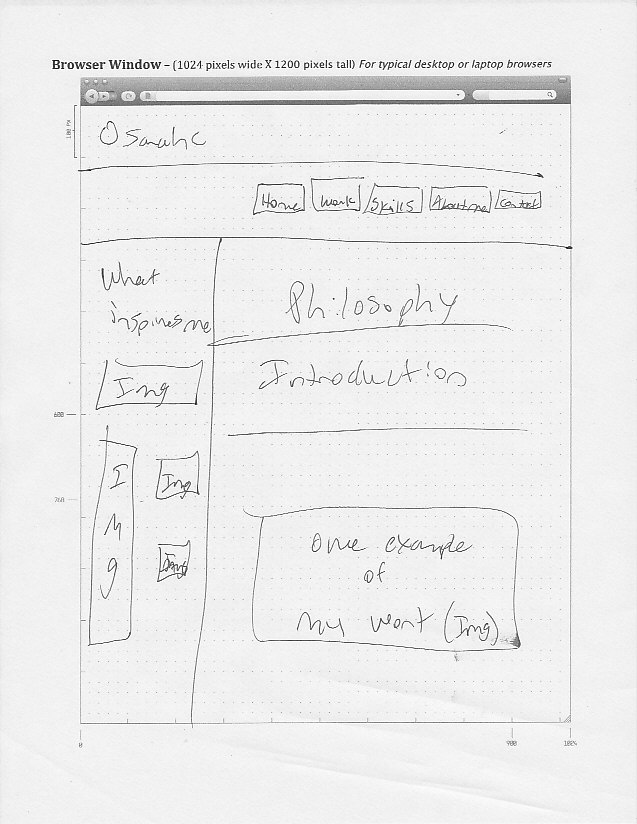 Browser Window – (1024 pixels wide X 1200 pixels tall) For typical desktop or laptop browsers
100 PX
Osanahc
Home Work Skills About me Contact
What
inspires me
Philosophy
Img
Introduction
600
Img
Img
760
Img
one example
of
my work (Img)
0 900 1024